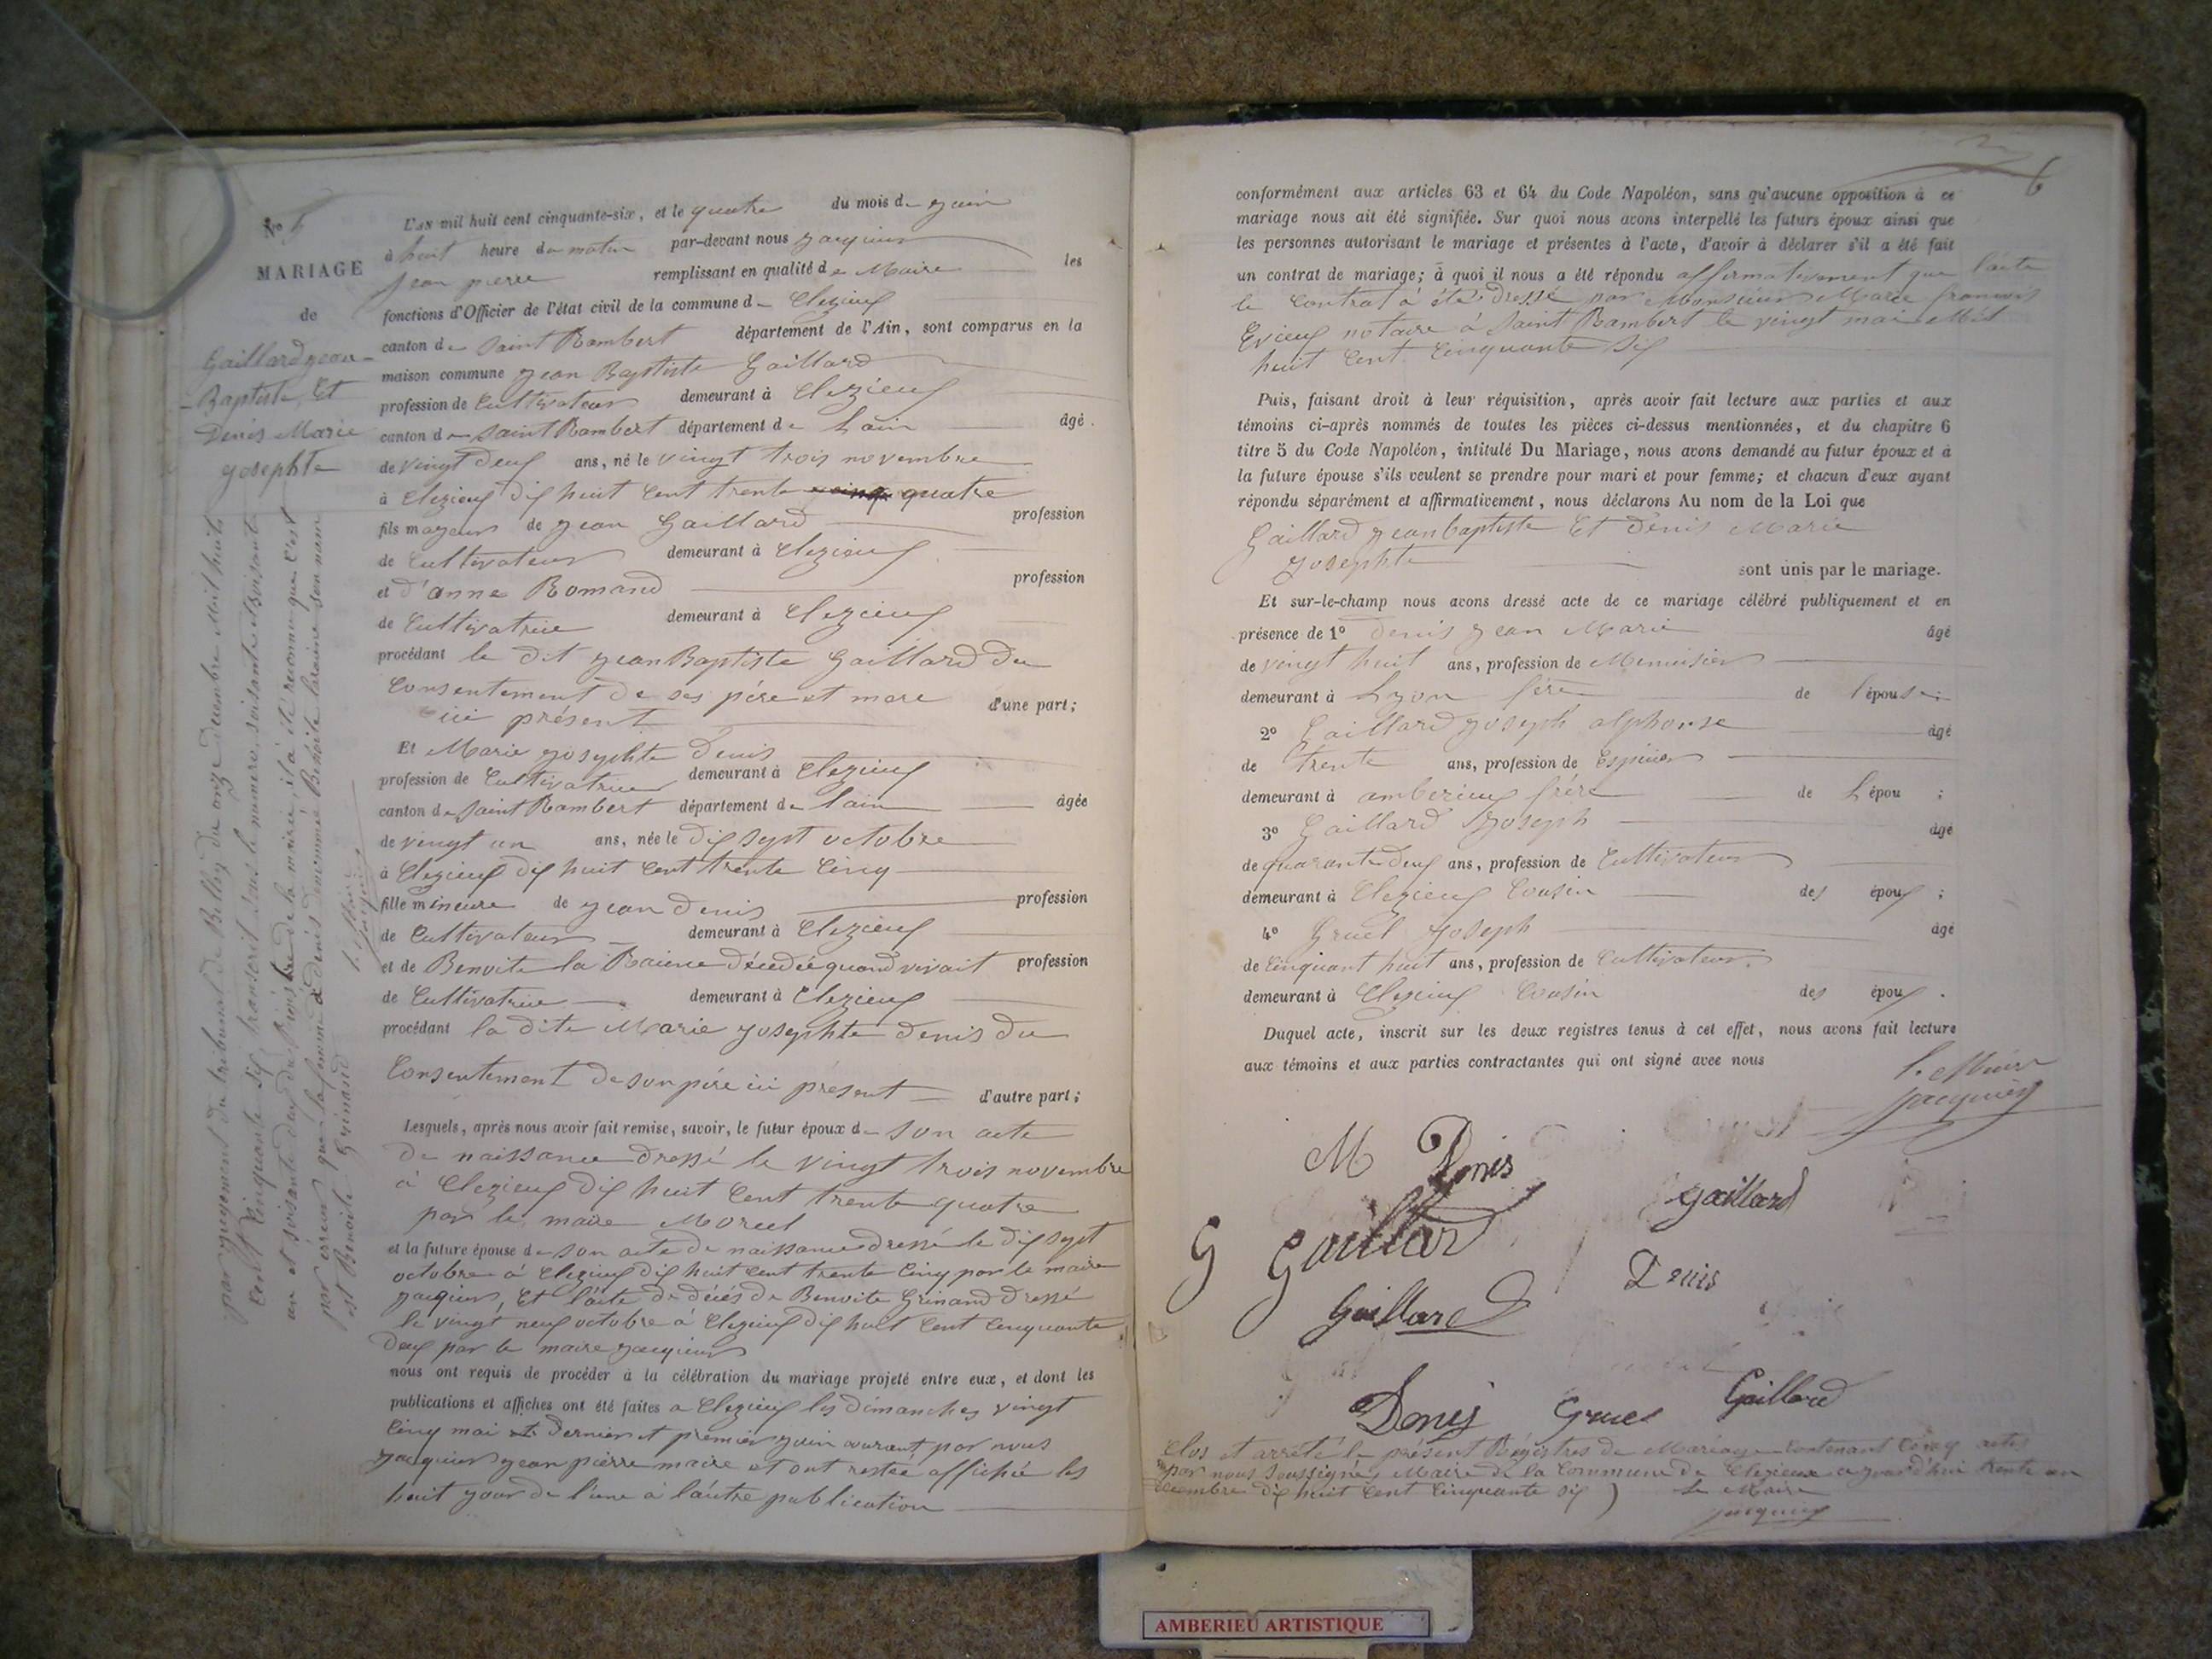 N° 5
MARIAGE
de
Gaillard jean
Baptiste Et
Denis Marie
josephte
par jugement du tribunal de Belley du onze decembre Mil huit
Cent Cinquante six transcrit sous le numero soixante et
un et soixante deux du registre de la mairie, il a été reconnu que C'est
par erreur que la femme Denis denommée Benoite laraine son nom
est Benoite Grinand
le Maire
jacquier
L'an mil huit cent cinquante-six, et le quatre du mois de juin
à huit heure du matin par-devant nous jacquier
jean pierre remplissant en qualité de Maire les
fonctions d'Officier de l'état civil de la commune de Clezieux
canton de Saint Rambert département de l'Ain, sont comparus en la
maison commune jean Baptiste Gaillard
profession de Cultivateur demeurant à Clezieux
canton de Saint Rambert département de Lain âgé
de vingt deux ans, né le vingt trois novembre
à Clezieux dix huit Cent trente quatre
fils mageur de jean Gaillard profession
de Cultivateur demeurant à Clezieux
et d'anne Romand profession
de Cultivatrice demeurant à Clezieux
procédant le dit jean Baptiste Gaillard du
Consentement de ses pére et mere
ici présent d'une part;
Et Marie josephte Denis
profession de Cultivatrice demeurant à Clezieux
canton de Saint Rambert département de lain âgée
de vingt un ans, née le dix sept octobre
à Clezieux dix huit Cent trente Cinq
fille mineure de jean Denis profession
de Cultivateur demeurant à Clezieux
et de Benoite la Raiene décedée quand vivait profession
de Cultivatrice demeurant à Clezieux
procédant la dite Marie josephte Denis du
Consentement de son pére ici présent d'autre part;
Lesquels, après nous avoir fait remise, savoir, le futur époux de son acte
de naissance dressé le vingt trois novembre
à Clezieux dix huit Cent trente quatre
par le maire Morcel
et la future épouse de son acte de naissance dressé le dix sept
octobre à Clezieux dix huit Cent trente Cinq par le maire
jacquier, Et l'acte de décés de Benoite Grinand dressé
le vingt neuf octobre à Clezieux dix huit Cent Cinquante
deux par le maire jacquier
nous ont requis de procéder à la célébration du mariage projeté entre eux, et dont les
publications et affiches ont été faites a Clezieux les dimanches vingt
Cinq mai dernier et premier juin courant par nous
jacquier jean pierre maire et ont restée affichée les
huit jour de l'une à l'autre publication
6
conformément aux articles 63 et 64 du Code Napoléon, sans qu'aucune opposition à ce
mariage nous ait été signifiée. Sur quoi nous avons interpellé les futurs époux ainsi que
les personnes autorisant le mariage et présentes à l'acte, d'avoir à déclarer s'il a été fait
un contrat de mariage; à quoi il nous a été répondu affirmativement que l'acte
le Contrat à été dressé par Monsieur Marie françois
Evieux notaire à Saint Rambert le vingt mai Mil
huit Cent Cinquante six
Puis, faisant droit à leur réquisition, après avoir fait lecture aux parties et aux
témoins ci-après nommés de toutes les pièces ci-dessus mentionnées, et du chapitre 6
titre 5 du Code Napoléon, intitulé Du Mariage, nous avons demandé au futur époux et à
la future épouse s'ils veulent se prendre pour mari et pour femme; et chacun d'eux ayant
répondu séparément et affirmativement, nous déclarons Au nom de la Loi que
Gaillard jean baptiste Et Denis Marie
josephte sont unis par le mariage.
Et sur-le-champ nous avons dressé acte de ce mariage célébré publiquement et en
présence de 1° Denis jean Marie âgé
de vingt huit ans, profession de Menuisier
demeurant à Lyon frére de l'épouse;
2° Gaillard joseph alphonse âgé
de trente ans, profession de Espicier
demeurant à amberieux frére de L'épou ;
3° Gaillard joseph âgé
de quarante deux ans, profession de Cultivateur
demeurant à Clezieux Cousin des époux ;
4° Gruel joseph âgé
de Cinquant huit ans, profession de Cultivateur.
demeurant à Clezieux Cousin des époux .
Duquel acte, inscrit sur les deux registres tenus à cet effet, nous avons fait lecture
aux témoins et aux parties contractantes qui ont signé avec nous
le Maire
jacquier
M Denis
Gaillard
G Gaillard
Denis
Gaillard
Gaillard
Denis Gruel
Clos et arreté le présent Régistres de Mariage Contenant Cinq actes
par nous soussignés Maire de la Commune de Clezieux a jourd'hui trente un
décembre dix huit Cent Cinquante six le Maire
jacquier
AMBERIEU ARTISTIQUE